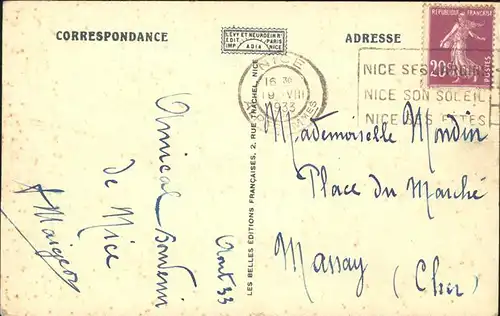 CORRESPONDANCE
LEVY ET NEURDEIN Rs
EDIT. PARIS
IMP. ADIA NICE
ADRESSE
RÉPUBLIQUE FRANÇAISE
20c
POSTES
NICE
16 30
19 VIII
1933
NICE SES
NICE SON SOLEIL
NICE SES FÊTES
LES BELLES ÉDITIONS FRANÇAISES, 2, RUE TRACHEL, NICE
Amical Souvenir
de Nice
Août 33
Mademoiselle Mondin
Place du Marché
Massay (Cher)